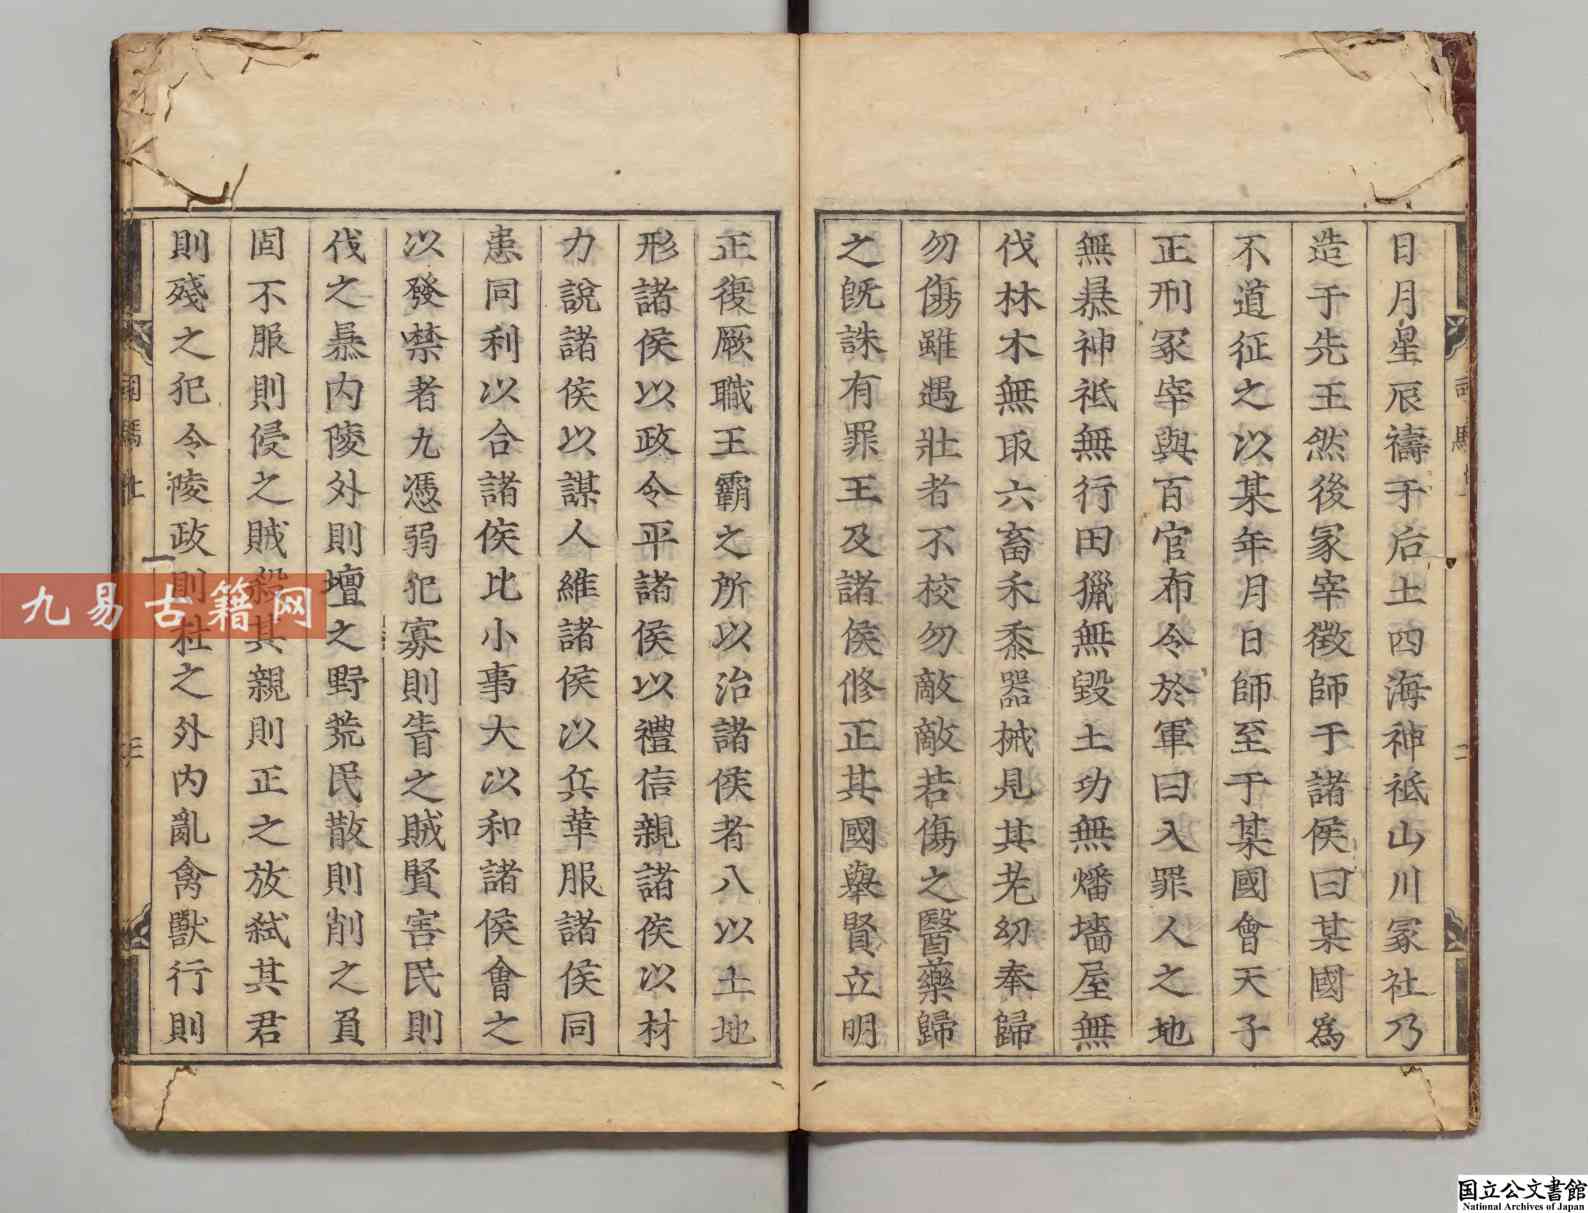 日月星辰禱于后土四海神祗山川冢社乃
造于先王然後冢宰徵師于諸侯曰某國爲
不道征之以某年月日師至于某國會天子
正刑冢宰與百官布令於軍曰入罪人之地
無暴神祗無行田獵無毀土功無燔墻屋無
伐林木無取六畜禾黍器械見其老幼奉歸
勿傷雖遇壯者不校勿敵敵若傷之醫藥歸
之旣誅有罪王及諸侯修正其國舉賢立明
正復厥職王霸之所以治諸侯者八以土地
形諸侯以政令平諸侯以禮信親諸侯以材
力說諸侯以謀人維諸侯以兵革服諸侯同
患同利以合諸侯比小事大以和諸侯會之
以發禁者九憑弱犯寡則眚之賊賢害民則
伐之暴內陵外則壇之野荒民散則削之負
固不服則侵之賊殺其親則正之放弒其君
則殘之犯令陵政則杜之外內亂禽獸行則
九易古籍网
国立公文書館
National Archives of Japan